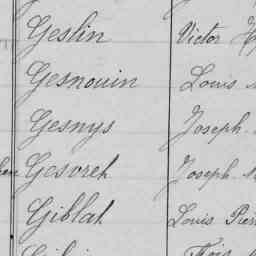 Geslin Victor
Gesnouin Louis
Gesnys Joseph
Gesvreh Joseph
Giblat Louis